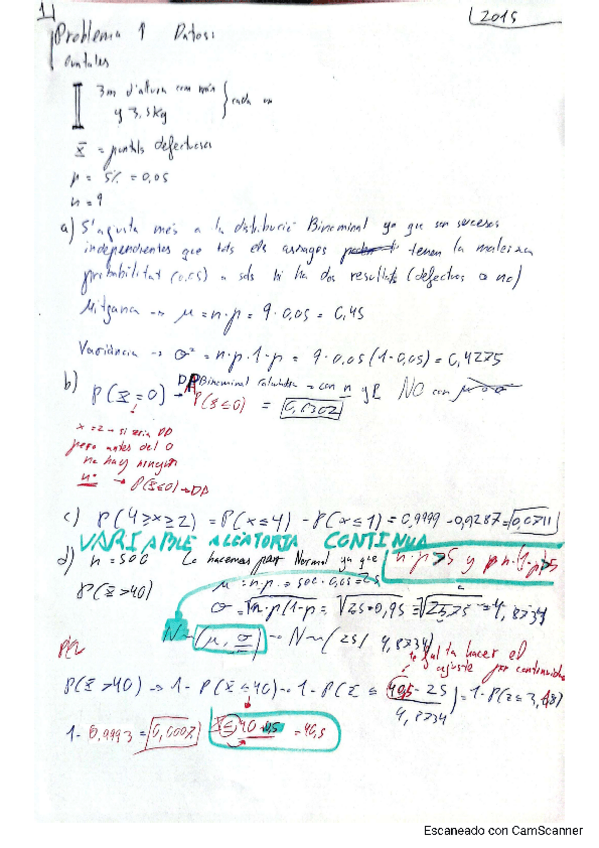 1 2015
Problema 1 Datos:
puntales
3m d'altura com màx
y 3,5kg } cada un
X = puntals defectuosos
p = 5% = 0,05
n = 9
a) S'ajusta més a la distribució Binominal ya que son sucesos
independientes que tots els assajos tenen la mateixa
probabilitat (0,05) a sols hi ha dos resultats (defectuos o no)
Mitjana → μ = n·p = 9·0,05 = 0,45
Variància → σ² = n·p·1-p = 9·0,05(1-0,05) = 0,4275
b) P(X=0) → DP Binominal calculadora = con n y p NO con μ σ
P(X≤0) = 0,6302
x = 2 → si seria DD
pero antes del 0
no hay ningún
nº → P(X≤0) → DD
c) P(4≥x≥2) = P(x≤4) - P(x≤1) = 0,9999 - 0,9287 = 0,0711
VARIABLE ALEATORIA CONTINUA
d) n = 500 Lo hacemos por Normal ya que n·p>5 y n·1-p>5
P(X>40) μ = n·p = 500·0,05 = 25
σ = √n·p(1-p = √25·0,95 = √23,75 = 4,8734
N~(μ, σ) → N~(25, 4,8734)
falta hacer el
ajuste por continuidad
P(X>40) → 1 - P(X≤40) → 1 - P(Z ≤ 40,5 - 25 / 4,8734) = 1 - P(z ≤ 3,18)
1 - 0,9993 = 0,0007 X≤40 +0,5 = 40,5
Escaneado con CamScanner